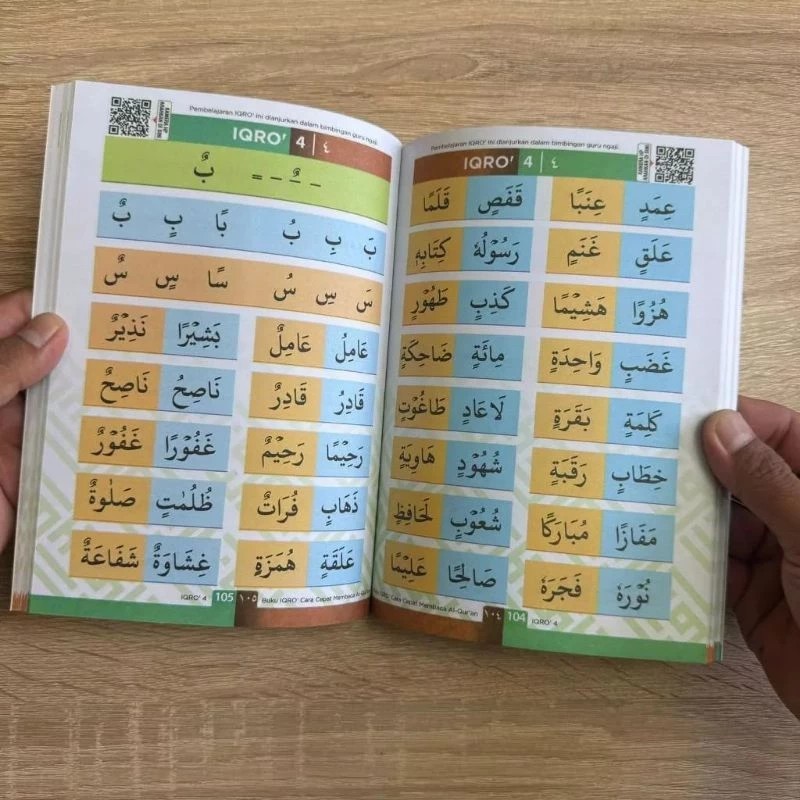 Pembelajaran IQRO' ini dianjurkan dalam bimbingan guru ngaji.
IQRO' 4 | ٤
عِمَدٍ عِنَبًا قَفَصٍ قَلَمًا
عَلَقٍ غَنَمٍ رَسُوْلُهٗ كِتَابِهٖ
هُزُوًا هَشِيْمًا كَذِبٍ طَهُوْرٍ
غَضَبٍ وَاحِدَةٍ مِائَةٍ ضَاحِكَةٍ
كَلِمَةٍ بَقَرَةٍ لَاعَادٍ طَاغُوْتٍ
خِطَابٍ رَقَبَةٍ شُهُوْدٍ هَاوِيَةٍ
مَفَازًا مُبَارَكًا شُعُوْبٍ لَحَافِظٍ
نُوْرَهٗ فَجَرَهٗ صَالِحًا عَلِيْمًا
Cara Cepat Membaca Al-Qur'an ١٠٤ 104 IQRO' 4
Pembelajaran IQRO' ini dianjurkan dalam bimbingan guru ngaji.
IQRO' 4 | ٤
– ٌ – = بٌ
بَ بِ بُ بًا بٍ بٌ
سَ سِ سُ سًا سٍ سٌ
عَامِلُ عَامِلٌ بَشِيْرًا نَذِيْرٌ
قَادِرُ قَادِرٌ نَاصِحُ نَاصِحٌ
رَحِيْمًا رَحِيْمٌ غَفُوْرًا غَفُوْرٌ
ذَهَابٍ فُرَاتٌ ظُلُمٰتٍ صَلٰوةٌ
عَلَقَةٍ هُمَزَةٍ غِشَاوَةٌ شَفَاعَةٌ
IQRO' 4 105 ١٠٥ Buku IQRO' Cara Cepat Membaca Al-Qur'an